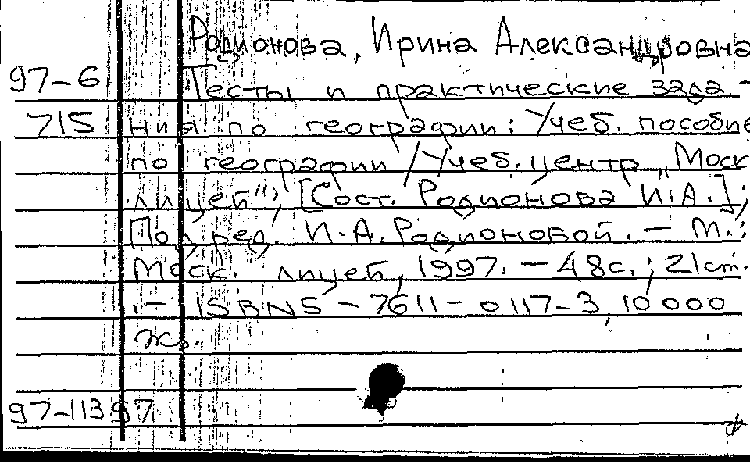 Родионова, Ирина Александровна
97-6 Тесты и практические зада-
715 ния по географии: Учеб. пособие
по географии / Учеб. центр "Моск.
лицей"; [Сост. Родионова И.А.];
Под ред. И.А. Родионовой. - М.:
Моск. лицей, 1997. - 48с.; 21cm.
- ISBN5-7611-0117-3, 10000
экз.
97-11397